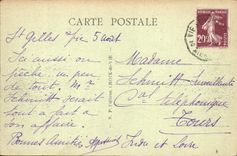 CARTE POSTALE
St Gilles s/vie 5 août
Ici aussi on
pêche un peu
de tout. Mr
Schmitt serait
tout à fait à
son affaire.
Bonnes Amitiés
Madame
Schmitt Surveillante
Cal Téléphonique
Tours
Indre et Loire
20c